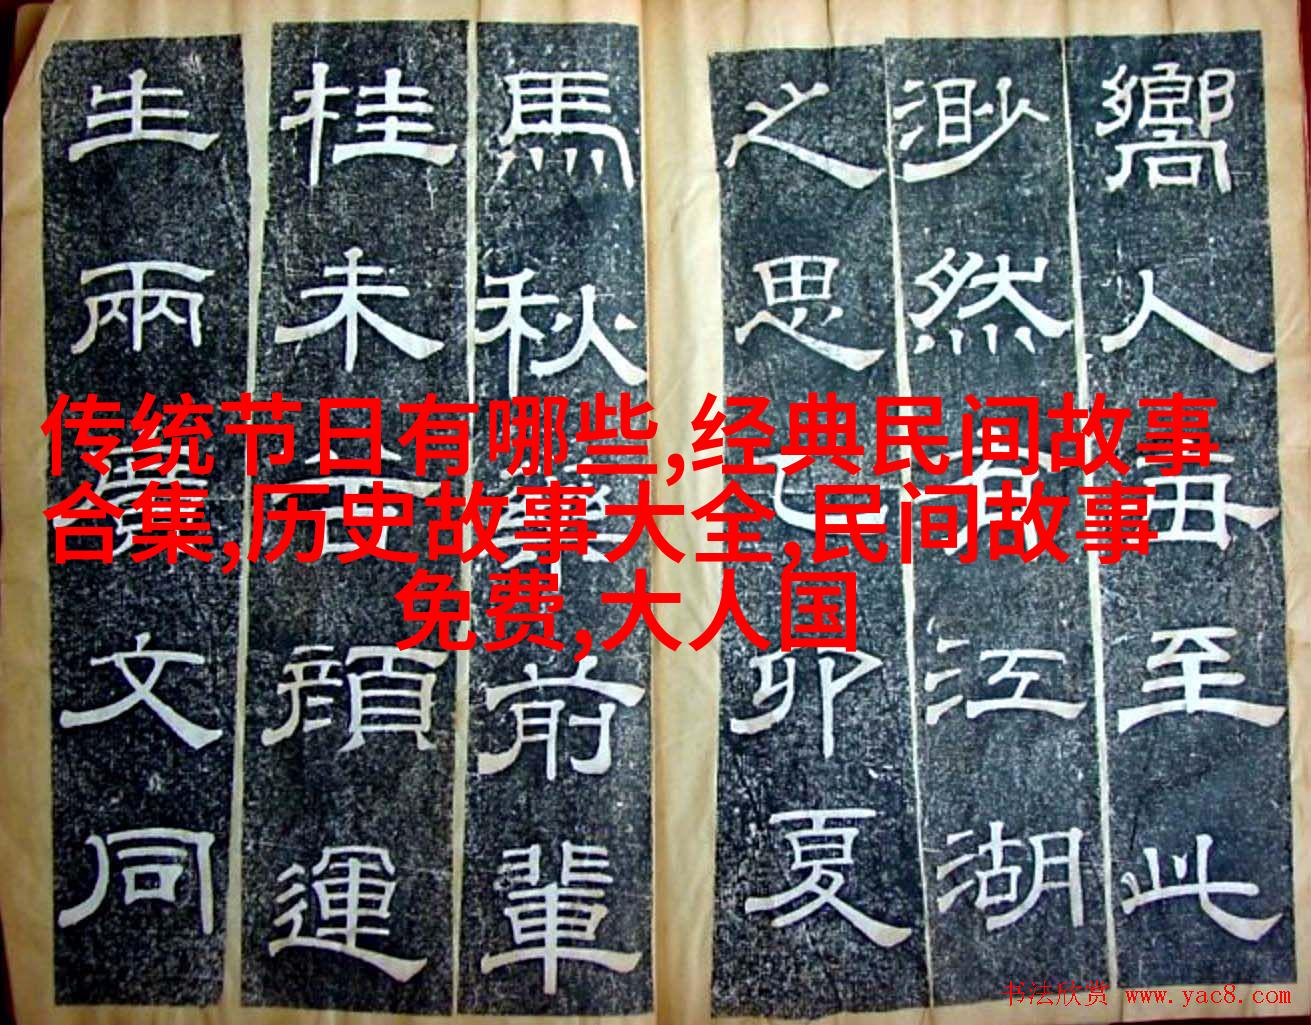 嚮人每至此
渺然有江湖
之思己卯夏
馬秋前輩
桂未顏運
生兩文同
传统节日有哪些,经典民间故事
合集,历史故事大全,民间故事
免费,大人国
书法欣赏 www.yac8.com